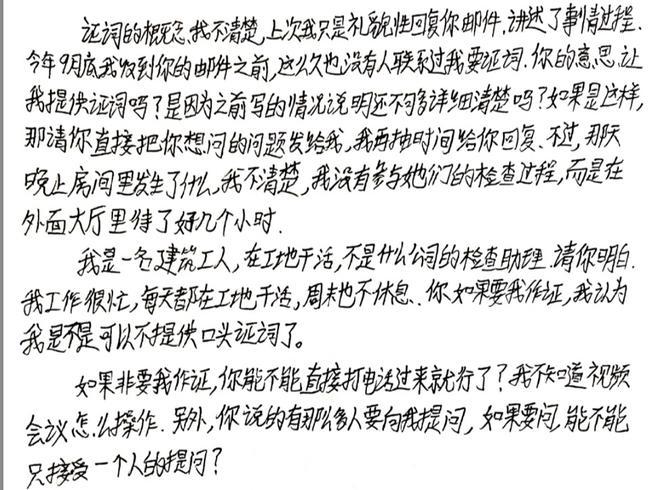 证词的概念,我不清楚,上次我只是礼貌性回复你邮件,讲述了事情过程.
今年9月底我收到你的邮件之前,这么久也没有人联系过我要证词.你的意思,让
我提供证词吗?是因为之前写的情况说明还不够详细清楚吗?如果是这样,
那请你直接把你想问的问题发给我,我再抽时间给你回复.不过,那天
晚上房间里发生了什么,我不清楚,我没有参与她们的检查过程,而是在
外面大厅里待了好几个小时.
我是一名建筑工人,在工地干活,不是什么公司的检查助理.请你明白.
我工作很忙,每天都在工地干活,周末也不休息.你如果要我作证,我认为
我是不是可以不提供口头证词了。
如果非要我作证,你能不能直接打电话过来就行了?我不知道视频
会议怎么操作.另外,你说的有那么多人要向我提问,如果要问,能不能
只接受一个人的提问?